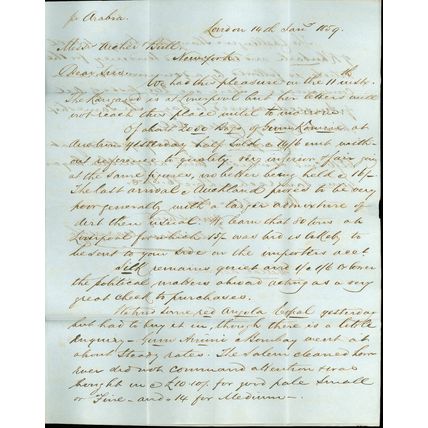 p Arabia.
London 14th Jany 1859.
Messrs Archer Bull,
New York
Dear Sirs
We had this pleasure on the 11 inst.
The Kangaroo is @ Liverpool but her letters will
not reach this place until to morrow
Of about 2000 Bags of Gum Kowrie at
auction yesterday half sold @ 14/6 cwt with-
out reference to quality, very inferior & fair going
at the same figures, no better being held @ 16/-
The last arrival @ Auckland proved to be very
poor generally, with a larger admixture of
dirt than usual. We learn that 30 tons at
Liverpool for which 15/- was bid is likely to
be sent to your side on the importers acct
Silk remains quiet and 1/ @ 1/6 lower
the political matters abroad acting as a very
great check to purchases.
We had some red Angola Copal yesterday
but had to buy it in, though there is a little
enquiry - Gum Animi @ Bombay went at
about steady rates. The Salem cleaned how
ever did not command attention & was
bought in @ £10.10/- for good pale small
or Fine - and 14 for Medium -